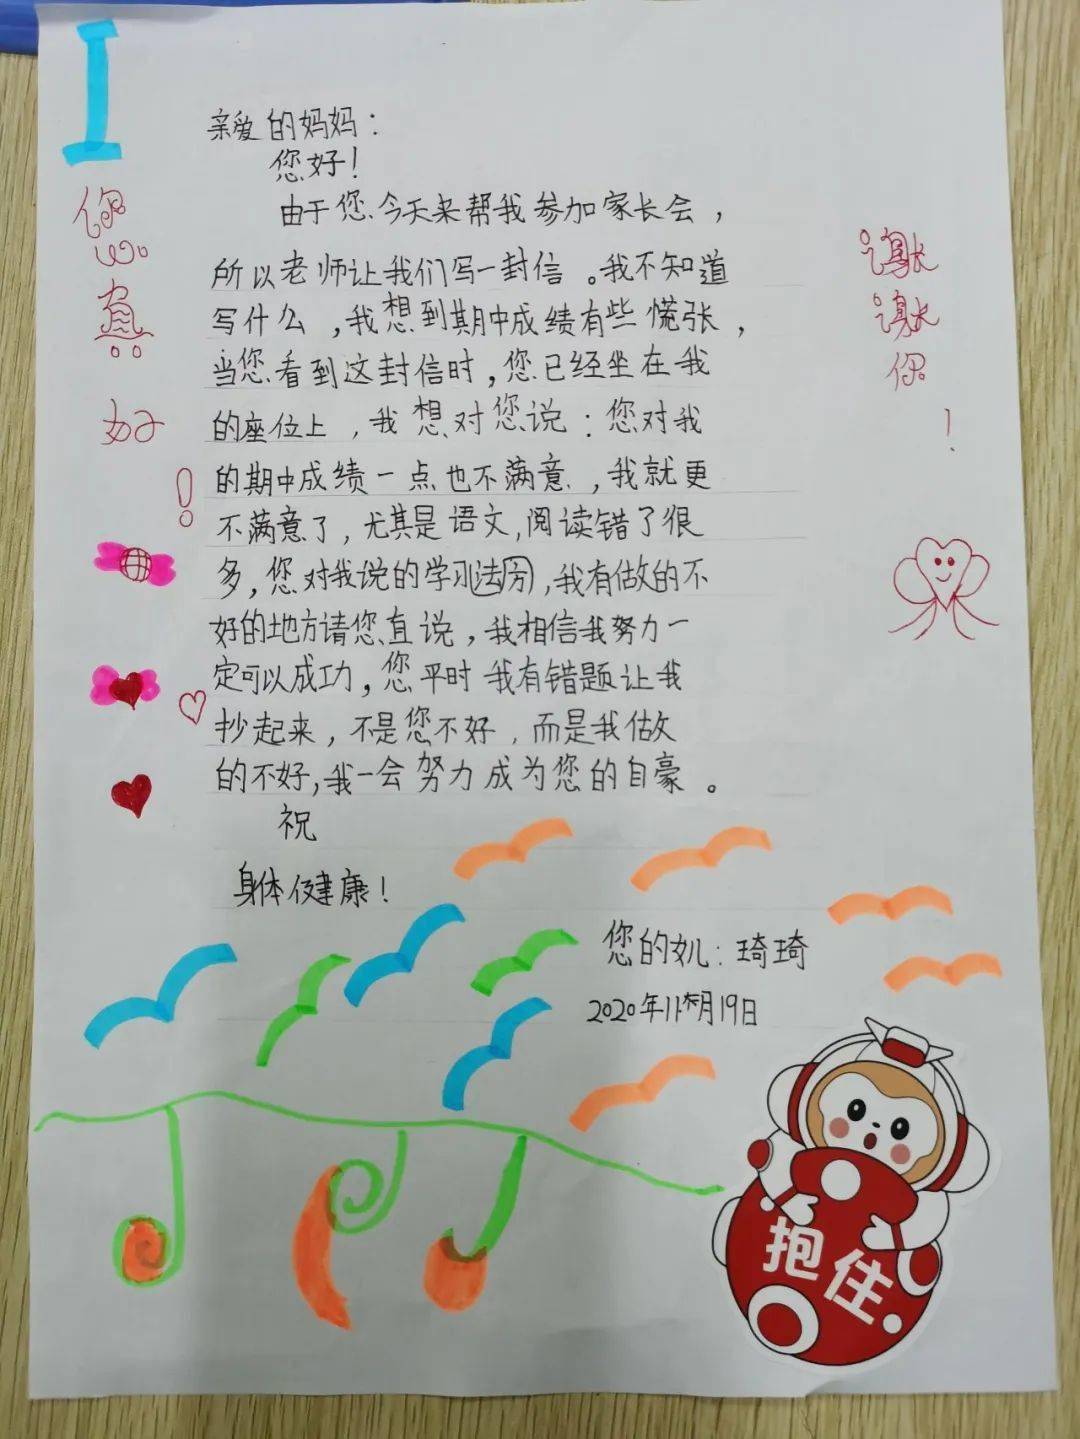 I
亲爱的妈妈：
您好！
由于您今天来帮我参加家长会，
所以老师让我们写一封信。我不知道
写什么，我想到期中成绩有些慌张，
当您看到这封信时，您已经坐在我
的座位上，我想对您说：您对我
的期中成绩一点也不满意，我就更
不满意了，尤其是语文，阅读错了很
多，您对我说的学习法
，我有做的不
好的地方请您直说，我相信我努力一
定可以成功，您平时我有错题让我
抄起来，不是您不好，而是我做
的不好，我一会努力成为您的自豪。
祝
身体健康！
您的女儿：琦琦
2020年11月19日
您
真
好
！
谢
谢
你
！
抱住